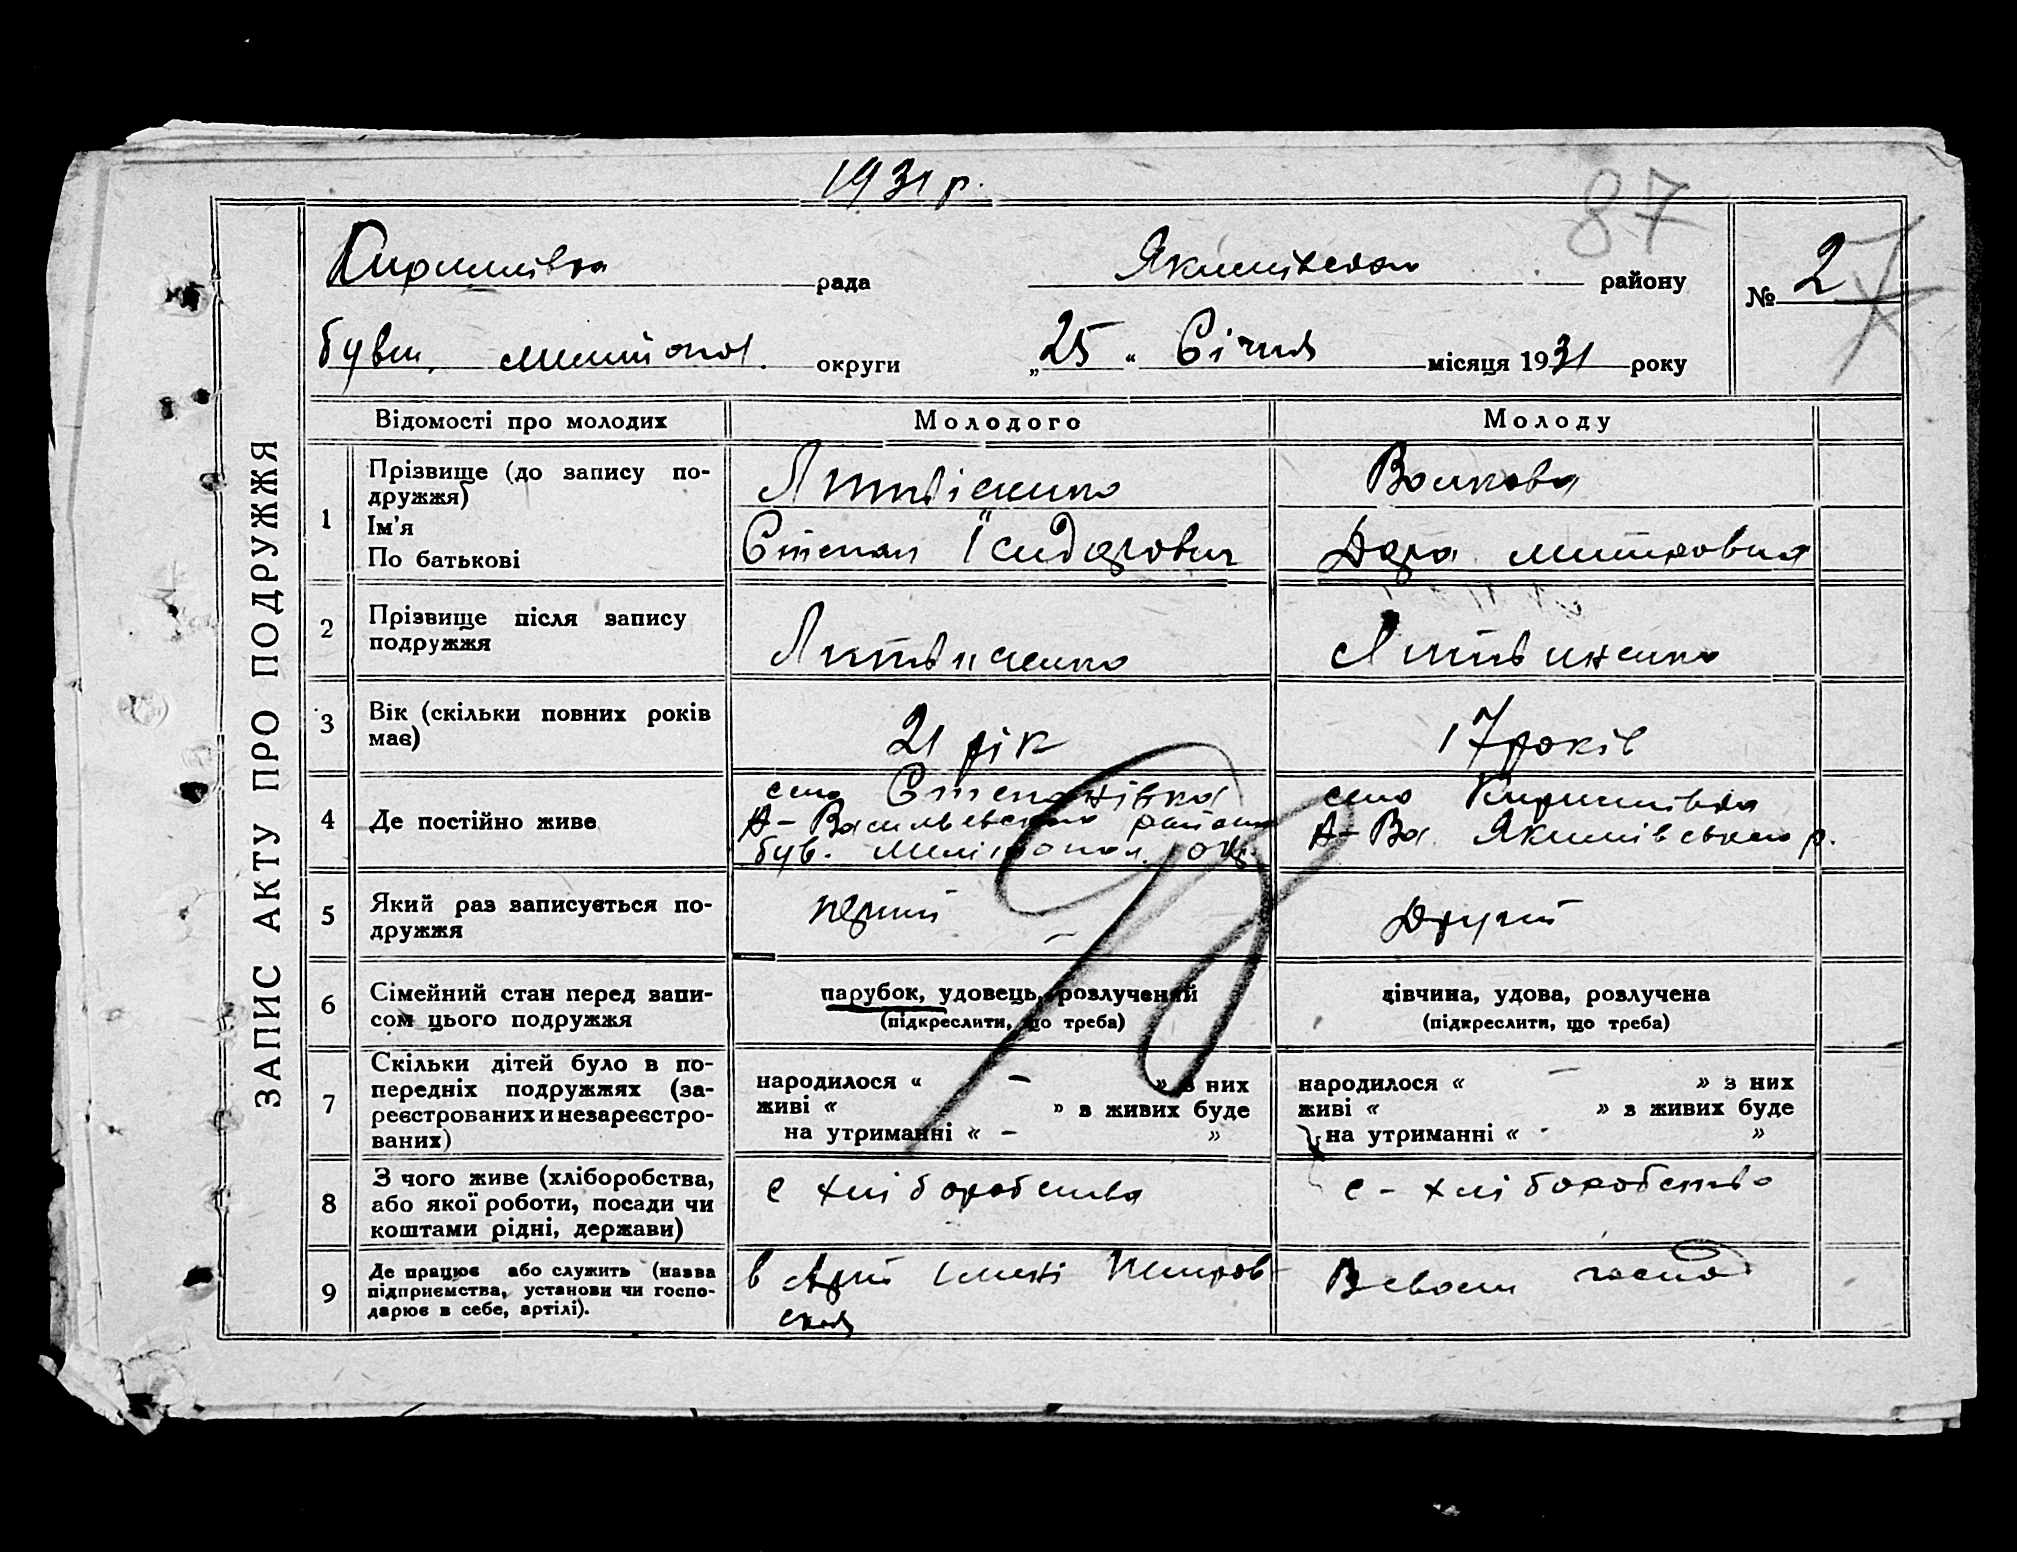 1931 р.
87
Кирилівка рада Якимівськ району № 2
бувш. округи „25“ Січня місяця 1931 року
ЗАПИС АКТУ ПРО ПОДРУЖЖЯ
Відомості про молодих Молодого Молоду
1 Прізвище (до запису по-
дружжя)
Ім'я
По батькові
Литвіненко Волкова
Степан Ісидорович Дора Митровна
2 Прізвище після запису
подружжя
Литвиненко Литвиненко
3 Вік (скільки повних років
має)
21 рік 17 років
4 Де постійно живе
село Степанівка
А-Васильевського району
був. Мелітопол. окр.
село Кирилівка
А-Ва. Якимівського р.
5 Який раз записується по-
дружжя
перший Другий
6 Сімейний стан перед запи-
сом цього подружжя
парубок, удовець, розлучений
(підкреслити, що треба)
дівчина, удова, розлучена
(підкреслити, що треба)
7 Скільки дітей було в по-
передніх подружжях (за-
реєстрованих и незареєстро-
ваних)
народилося « — » з них
живі « » в живих буде
на утриманні « — »
народилося « — » з них
живі « » в живих буде
на утриманні « - »
8 З чого живе (хліборобства,
або якої роботи, посади чи
коштами рідні, держави)
с хліборобства с - хліборобство
9 Де працює або служить (назва
підприємства, установи чи госпо-
дарює в себе, артілі).
в Арті імені Петров-
ская
В своем